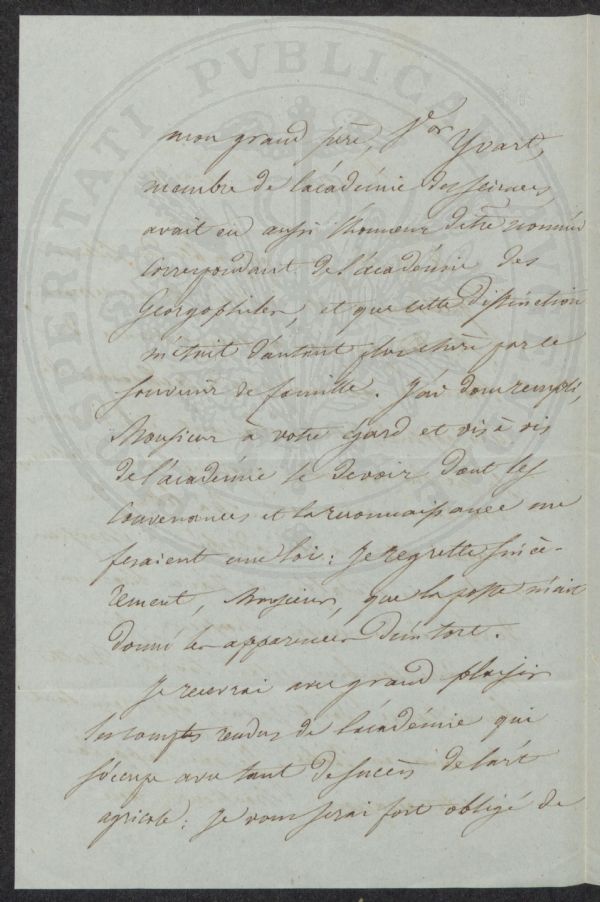 mon grand père, Vor Yvart,
membre de l'académie des sciences,
avait eu aussi l'honneur d'être nommé
Correspondant de l'académie des
Georgophiles, et que cette distinction
m'était d'autant plus chère par ce
souvenir de famille. J'ai donc rempli,
Monsieur à votre égard et vis à vis
de l'académie le devoir dont les
Convenances et la reconnaissance me
feraient une loi : Je regrette sincè-
rement, Monsieur, que la poste m'ait
donné les apparences d'un tort.
Je recevrai avec grand plaisir
les comptes rendus de l'académie qui
s'occupe avec tant de succès de l'art
agricole : je vous serai fort obligé de
PROSPERITATI PVBLICAE